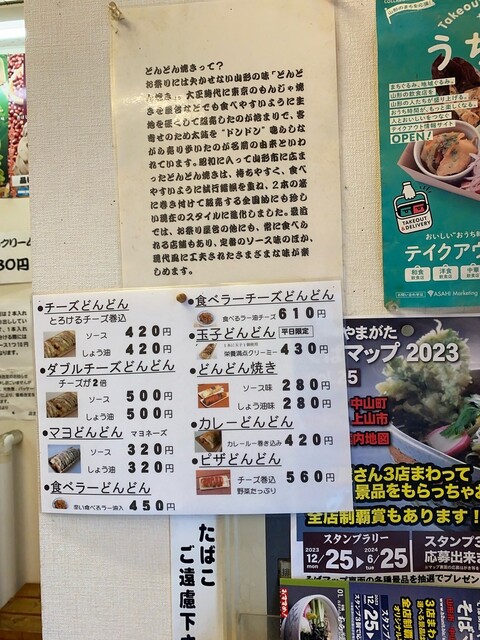 どんどん焼きって？
お祭りには欠かせない山形の味「どんど
ん焼き」。大正時代に東京のもんじゃ焼
きを屋台などでも食べやすいように生
地を硬くして販売したのが始まりで、客
寄せのため太鼓を“ドンドン”鳴らしな
がら売り歩いたのが名前の由来といわ
れています。昭和に入って山形市に広ま
ったどんどん焼きは、持ちやすく、食べ
やすいように試行錯誤を重ね、2本の箸
に巻き付けて販売する全国的にも珍し
い現在のスタイルに進化しました。最近
では、お祭り屋台の他にも、常に食べら
れる店舗もあり、定番のソース味のほか、
現代風に工夫されたさまざまな味が楽
しめます。
•チーズどんどん
とろけるチーズ巻込
ソース 420円
しょう油 420円
•ダブルチーズどんどん
チーズが2倍
ソース 500円
しょう油 500円
•マヨどんどん マヨネーズ
ソース 320円
しょう油 320円
•食べラーどんどん
辛い食べるラー油入 450円
•食べラーチーズどんどん
食べるラー油チーズ 610円
•玉子どんどん 平日限定
栄養満点クリーミー 430円
•どんどん焼き
ソース味 280円
しょう油味 280円
•カレーどんどん
カレールー巻き込み 420円
•ピザどんどん
チーズ巻込
野菜たっぷり 560円
たばこ
ご遠慮下
クリーム
30円
Takeou
うち
まちぐるみ、地域ぐるみ。
山形の飲食店を
山形の人たちが盛り上げる。
おうち時間が、もっと楽しくなる。
人とおいしいをつなぐ
テイクアウト情報サイト
OPEN!
TAKEOUT
&DELIVERY
おいしい“おうち時
テイクアウ
和食
洋食
中華
ASAHI Marketing
やまがた
マップ 2023
中山町
上山市
内地図
さん3店まわって
景品をもらっちゃお
全店制覇賞もあります！
スタンプラリー
2023
12/25
mon
2024
6/25
tue
スタンプ3
応募出来ま